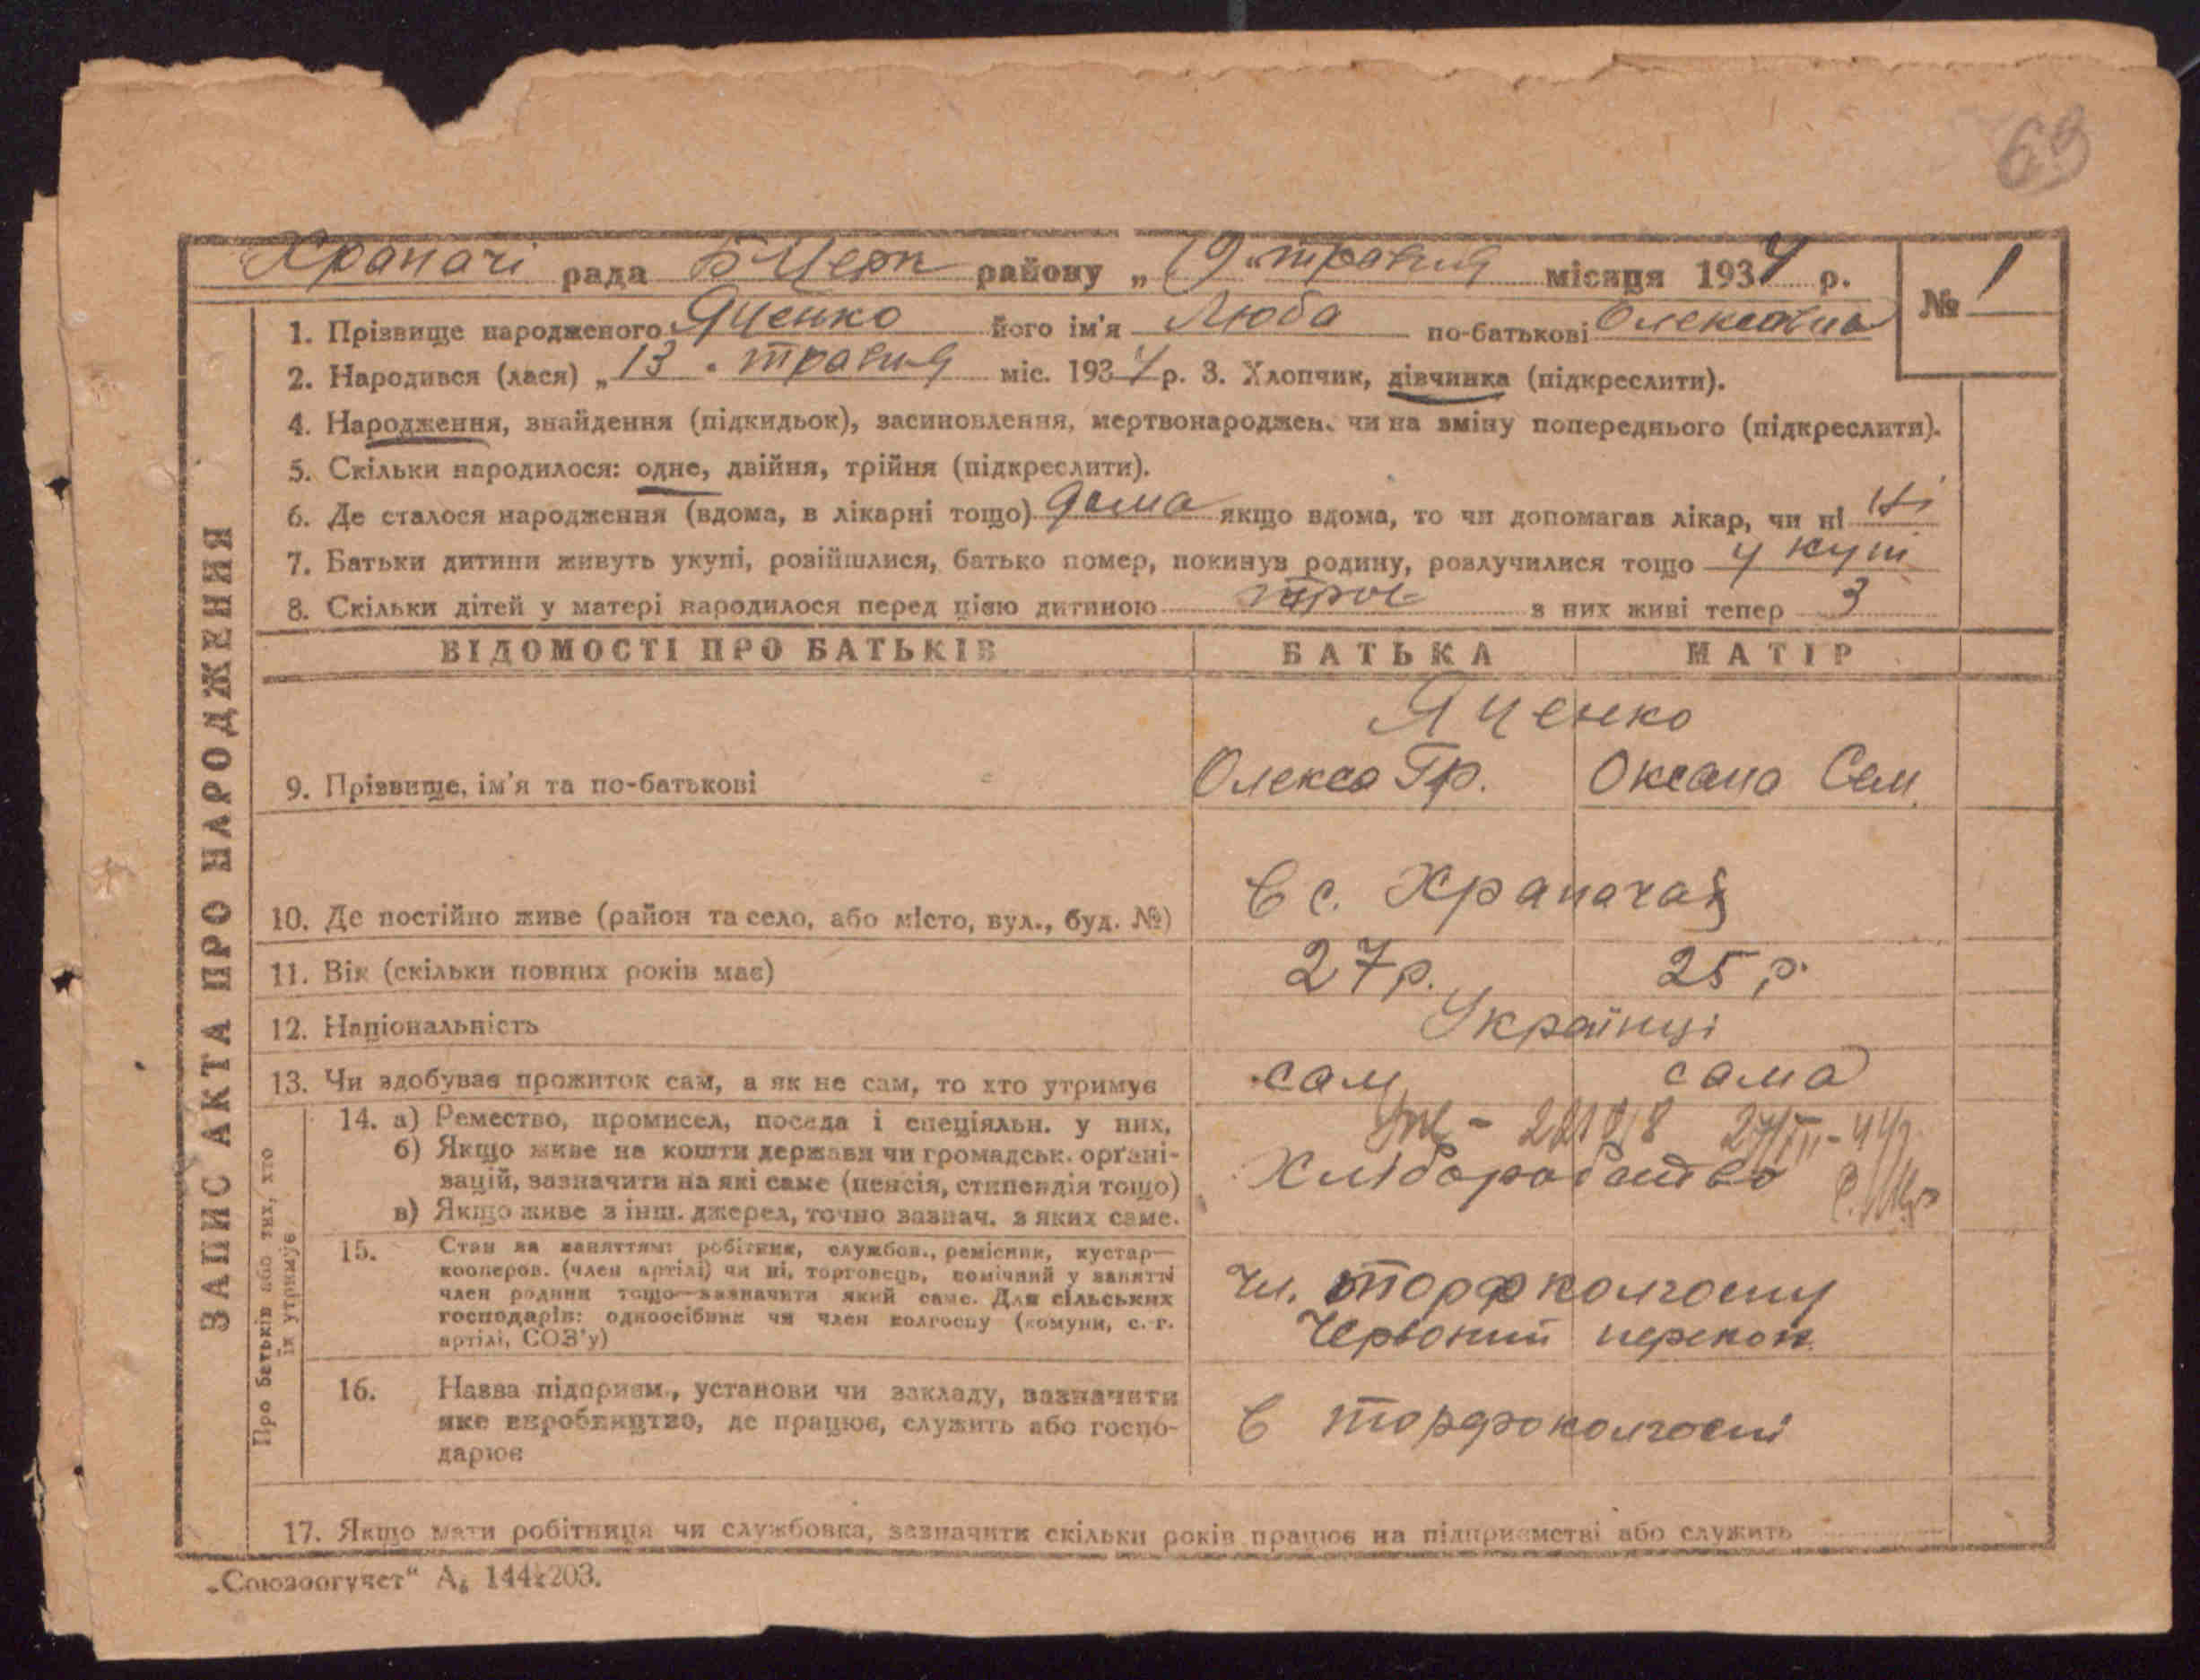 69
Храпачі рада БЦерк району „19“ травня місяця 1934 р.
№ 1
1. Прізвище народженого Яценко його ім'я Люба по-батькові Олексавна
2. Народився (лася) „13“ травня міс. 1934 р. 3. Хлопчик, дівчинка (підкреслити).
4. Народження, знайдення (підкидьок), засиновлення, мертвонароджен. чи на зміну попереднього (підкреслити).
5. Скільки народилося: одне, двійня, трійня (підкреслити).
6. Де сталося народження (вдома, в лікарні тощо) дома якщо вдома, то чи допомагав лікар, чи ні Ні
7. Батьки дитини живуть укупі, розійшлися, батько помер, покинув родину, розлучилися тощо у купі
8. Скільки дітей у матері народилося перед цією дитиною троє з них живі тепер 3
ЗАПИС АКТА ПРО НАРОДЖЕННЯ
ВІДОМОСТІ ПРО БАТЬКІВ БАТЬКА МАТІР
Яценко
9. Прізвище, ім'я та по-батькові Олекса Гр. Оксана Сем.
10. Де постійно живе (район та село, або місто, вул., буд. №) в с. Храпачах
11. Вік (скільки повних років має) 27 р. 25 р.
12. Національність Українці
13. Чи здобуває прожиток сам, а як не сам, то хто утримує сам сама
Про батьків або тих, хто їх утримує
14. а) Ремество, промисел, посада і спеціяльн. у них,
б) Якщо живе на кошти держави чи громадськ. органі-
зацій, зазначити на які саме (пенсія, стипендія тощо) Хліборобство
в) Якщо живе з інш. джерел, точно зазнач. з яких саме.
15. Стан за заняттям: робітник, службов., ремісник, кустар—
кооперов. (член артілі) чи ні, торговець, помічний у занятті
член родини тощо—зазначити який саме. Для сільських
господарів: одноосібник чи член колгоспу (комуни, с.-г.
артілі, СОЗ'у)
Чл. торфколгоспу
Червоний перекоп
16. Назва підприєм., установи чи закладу, зазначити
яке виробництво, де працює, служить або госпо-
дарює
в торфоколгоспі
17. Якщо мати робітниця чи службовка, зазначити скільки років працює на підприємстві або служить
„Союзоргучет“